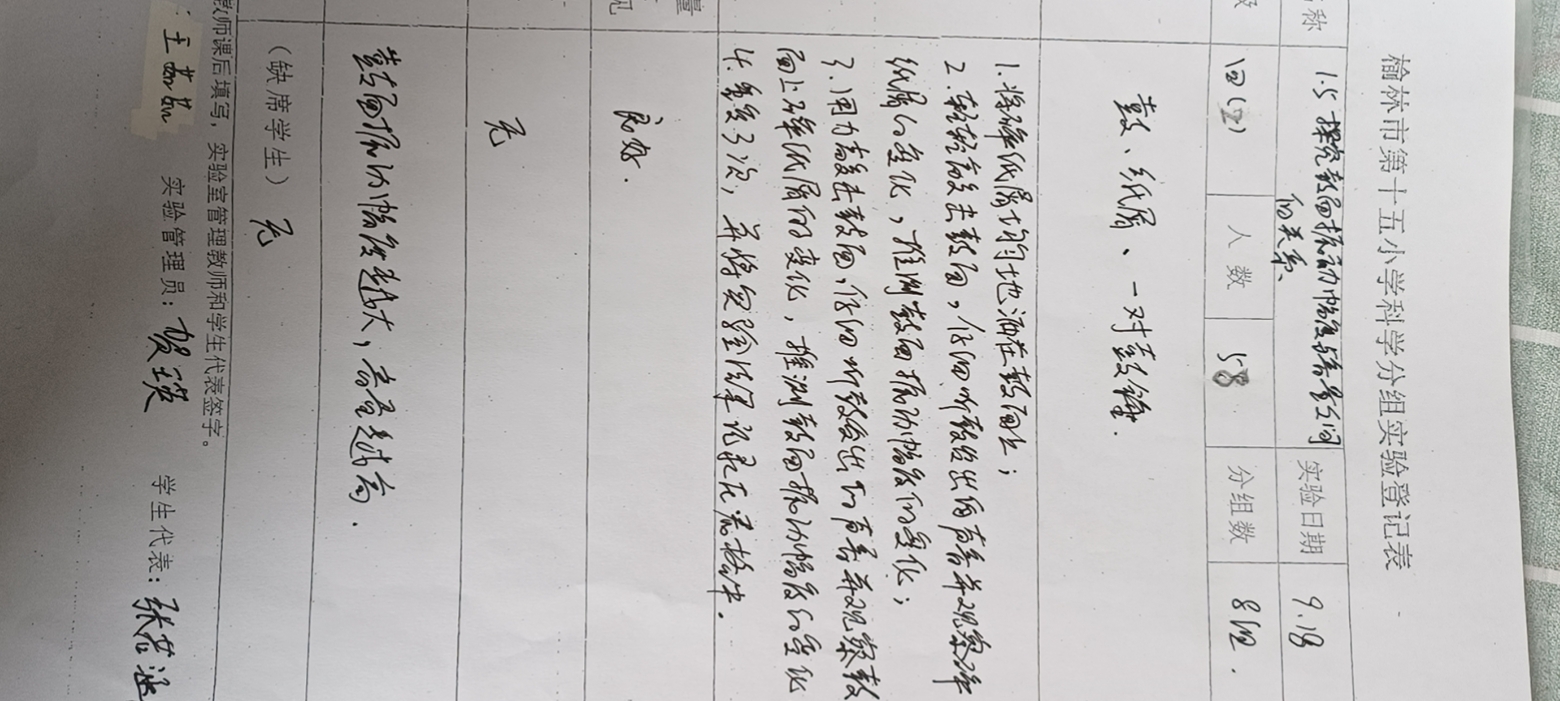 榆林市第十五小学科学分组实验登记表
称 1.5 探究鼓面振动幅度与音量之间的关系 实验日期 9.18
级 四(2) 人数 58 分组数 8组.
鼓、纸屑、一对鼓锤.
1.将碎纸屑均匀地洒在鼓面上；
2.轻轻敲击鼓面，仔细听鼓发出的声音并观察碎
纸屑的变化，推测鼓面振动幅度的变化；
3.用力敲击鼓面，仔细听鼓发出的声音并观察鼓
面上碎纸屑的变化，推测鼓面振动幅度的变化
4.重复3次，并将实验结果记录在表格中.
量
见
良好.
无
鼓面振动的幅度越大，音量越高.
（缺席学生） 无
教师课后填写，实验室管理教师和学生代表签字。
：王 实验管理员：贺瑛 学生代表：张若涵